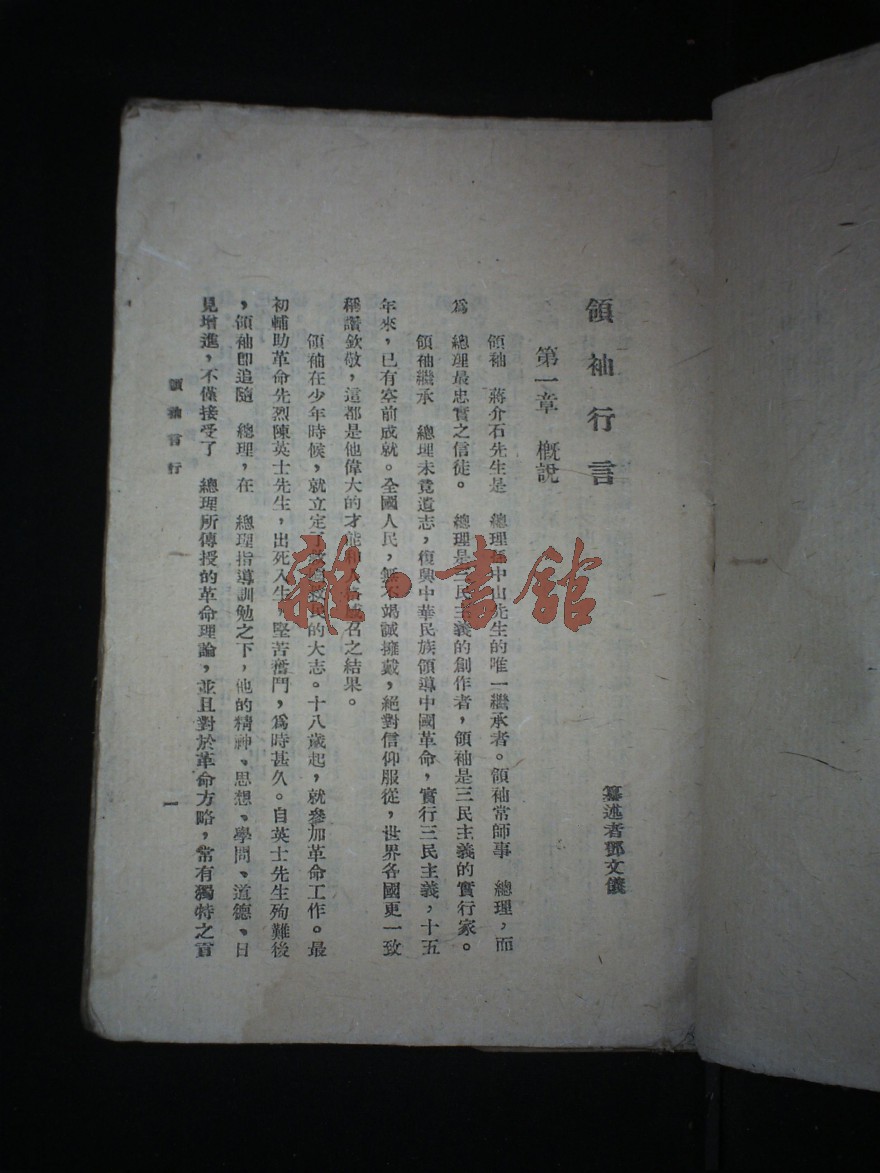 領袖行言
纂述者鄧文儀
第一章　概說
領袖　蔣介石先生是　總理孫中山先生的唯一繼承者。領袖常師事　總理，而
爲　總理最忠實之信徒。　總理是三民主義的創作者，領袖是三民主義的實行家。
領袖繼承　總理未竟遺志，復興中華民族領導中國革命，實行三民主義，十五
年來，已有空前成就。全國人民，無不竭誠擁戴，絕對信仰服從，世界各國更一致
稱讚欽敬，這都是他偉大的才能和人格感召之結果。
領袖在少年時候，就立定了救國救民的大志。十八歲起，就參加革命工作。最
初輔助革命先烈陳英士先生，出死入生，堅苦奮鬥，爲時甚久。自英士先生殉難後
，領袖即追隨　總理，在　總理指導訓勉之下，他的精神、思想、學問、道德、日
見增進，不僅接受了　總理所傳授的革命理論，並且對於革命方略，常有獨特之貢
領袖言行
一
雜·書館